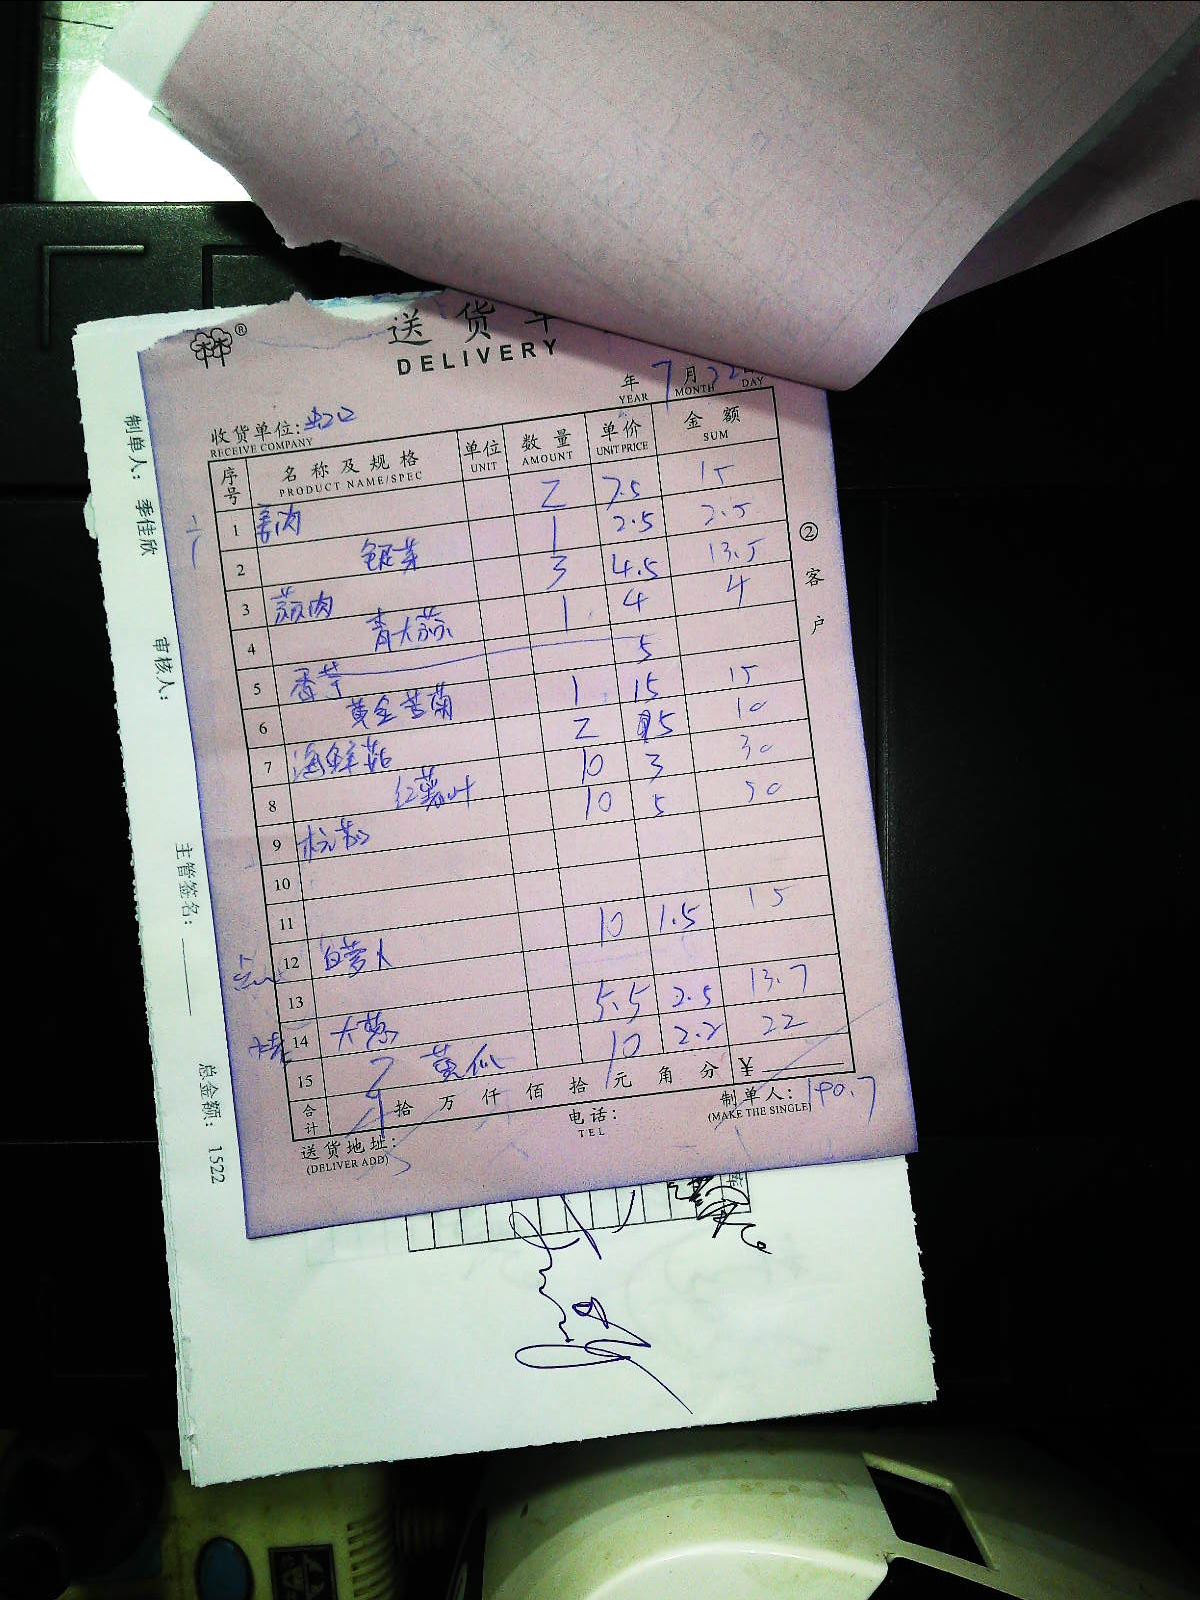 送货单
DELIVERY
年 7 月 22 日
YEAR MONTH DAY
收货单位:
RECEIVE COMPANY
序号 名称及规格 单位 数量 单价 金额
PRODUCT NAME/SPEC UNIT AMOUNT UNIT PRICE SUM
1 姜肉 2 7.5 15
2 1 2.5 2.5
3 蒜肉 3 4.5 13.5
4 青大蒜 1 4 4
5 香芋 5
6 黄金苦菊 1 15 15
7 海鲜菇 2 5 10
8 红薯叶 10 3 30
9 杭茄 10 5 50
10
11
12 白萝卜 10 1.5 15
13
14 大葱 5.5 2.5 13.7
15 黄瓜 10 2.2 22
合计 拾 万 仟 佰 拾 元 角 分 ¥
190.7
送货地址: 电话: 制单人:
(DELIVER ADD) TEL (MAKE THE SINGLE)
② 客户
制单人: 季佳欣 审核人: 主管签名: 总金额: 1522